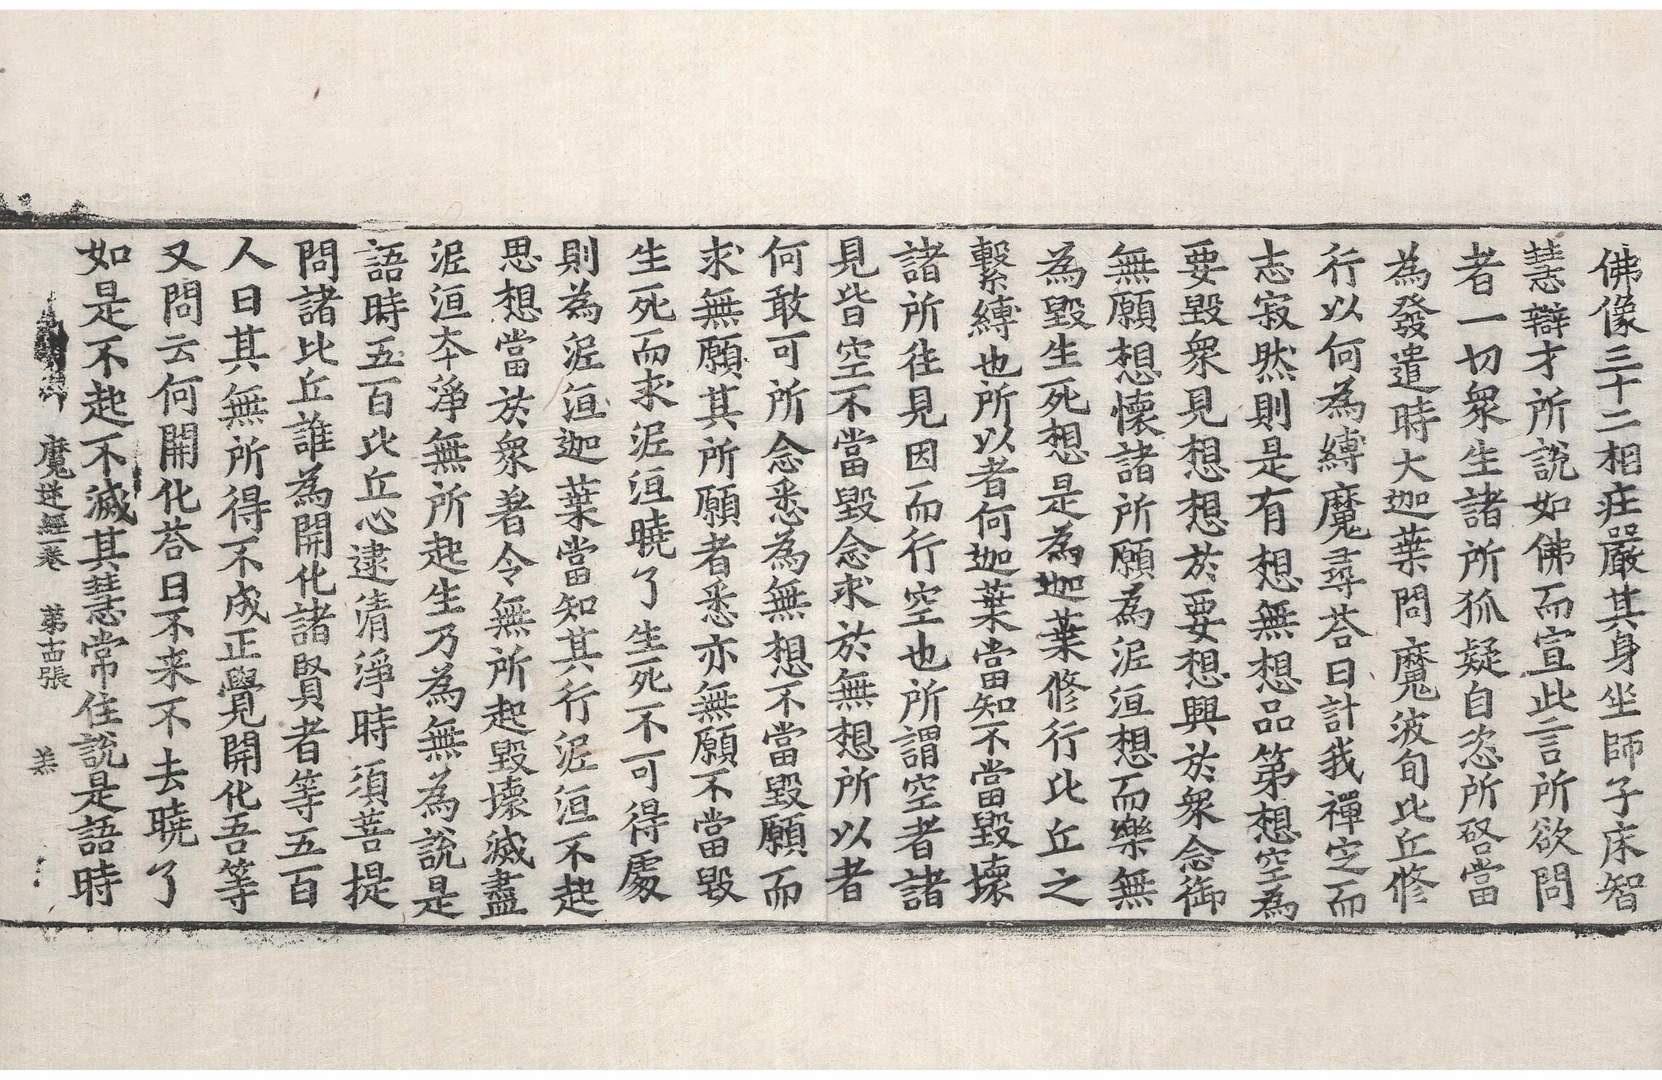 佛像三十二相庄嚴其身坐師子床智
慧辯才所說如佛而宣此言所欲問
者一切衆生諸所狐疑自恣所啓當
為發遣時大迦葉問魔波旬比丘修
行以何為縛魔尋荅曰計我禪定而
志寂然則是有想無想品第想空為
要毀衆見想想於要想興於衆念御
無願想懷諸所願為泥洹想而樂無
為毀生死想是為迦葉修行比丘之
繫縛也所以者何迦葉當知不當毀壞
諸所往見因而行空也所謂空者諸
見皆空不當毀念求於無想所以者
何敢可所念悉為無想不當毀願而
求無願其所願者悉亦無願不當毀
生死而求泥洹曉了生死不可得處
則為泥洹迦葉當知其行泥洹不起
思想當於衆著令無所起毀壞滅盡
泥洹夲淨無所起生乃為無為說是
語時五百比丘心逮清淨時須菩提
問諸比丘誰為開化諸賢者等五百
人曰其無所得不成正覺開化吾等
又問云何開化荅曰不来不去曉了
如是不起不滅其慧常住說是語時
魔逆經一卷 第十四張 羔